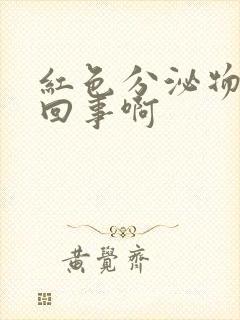 紅色分泌物
回事啊
黃覺齊